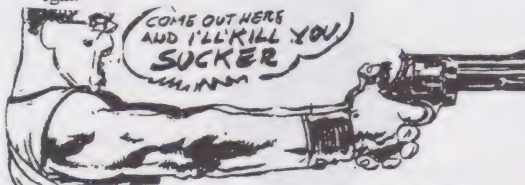 COME OUT HERE
AND I'LL KILL YOU,
SUCKER